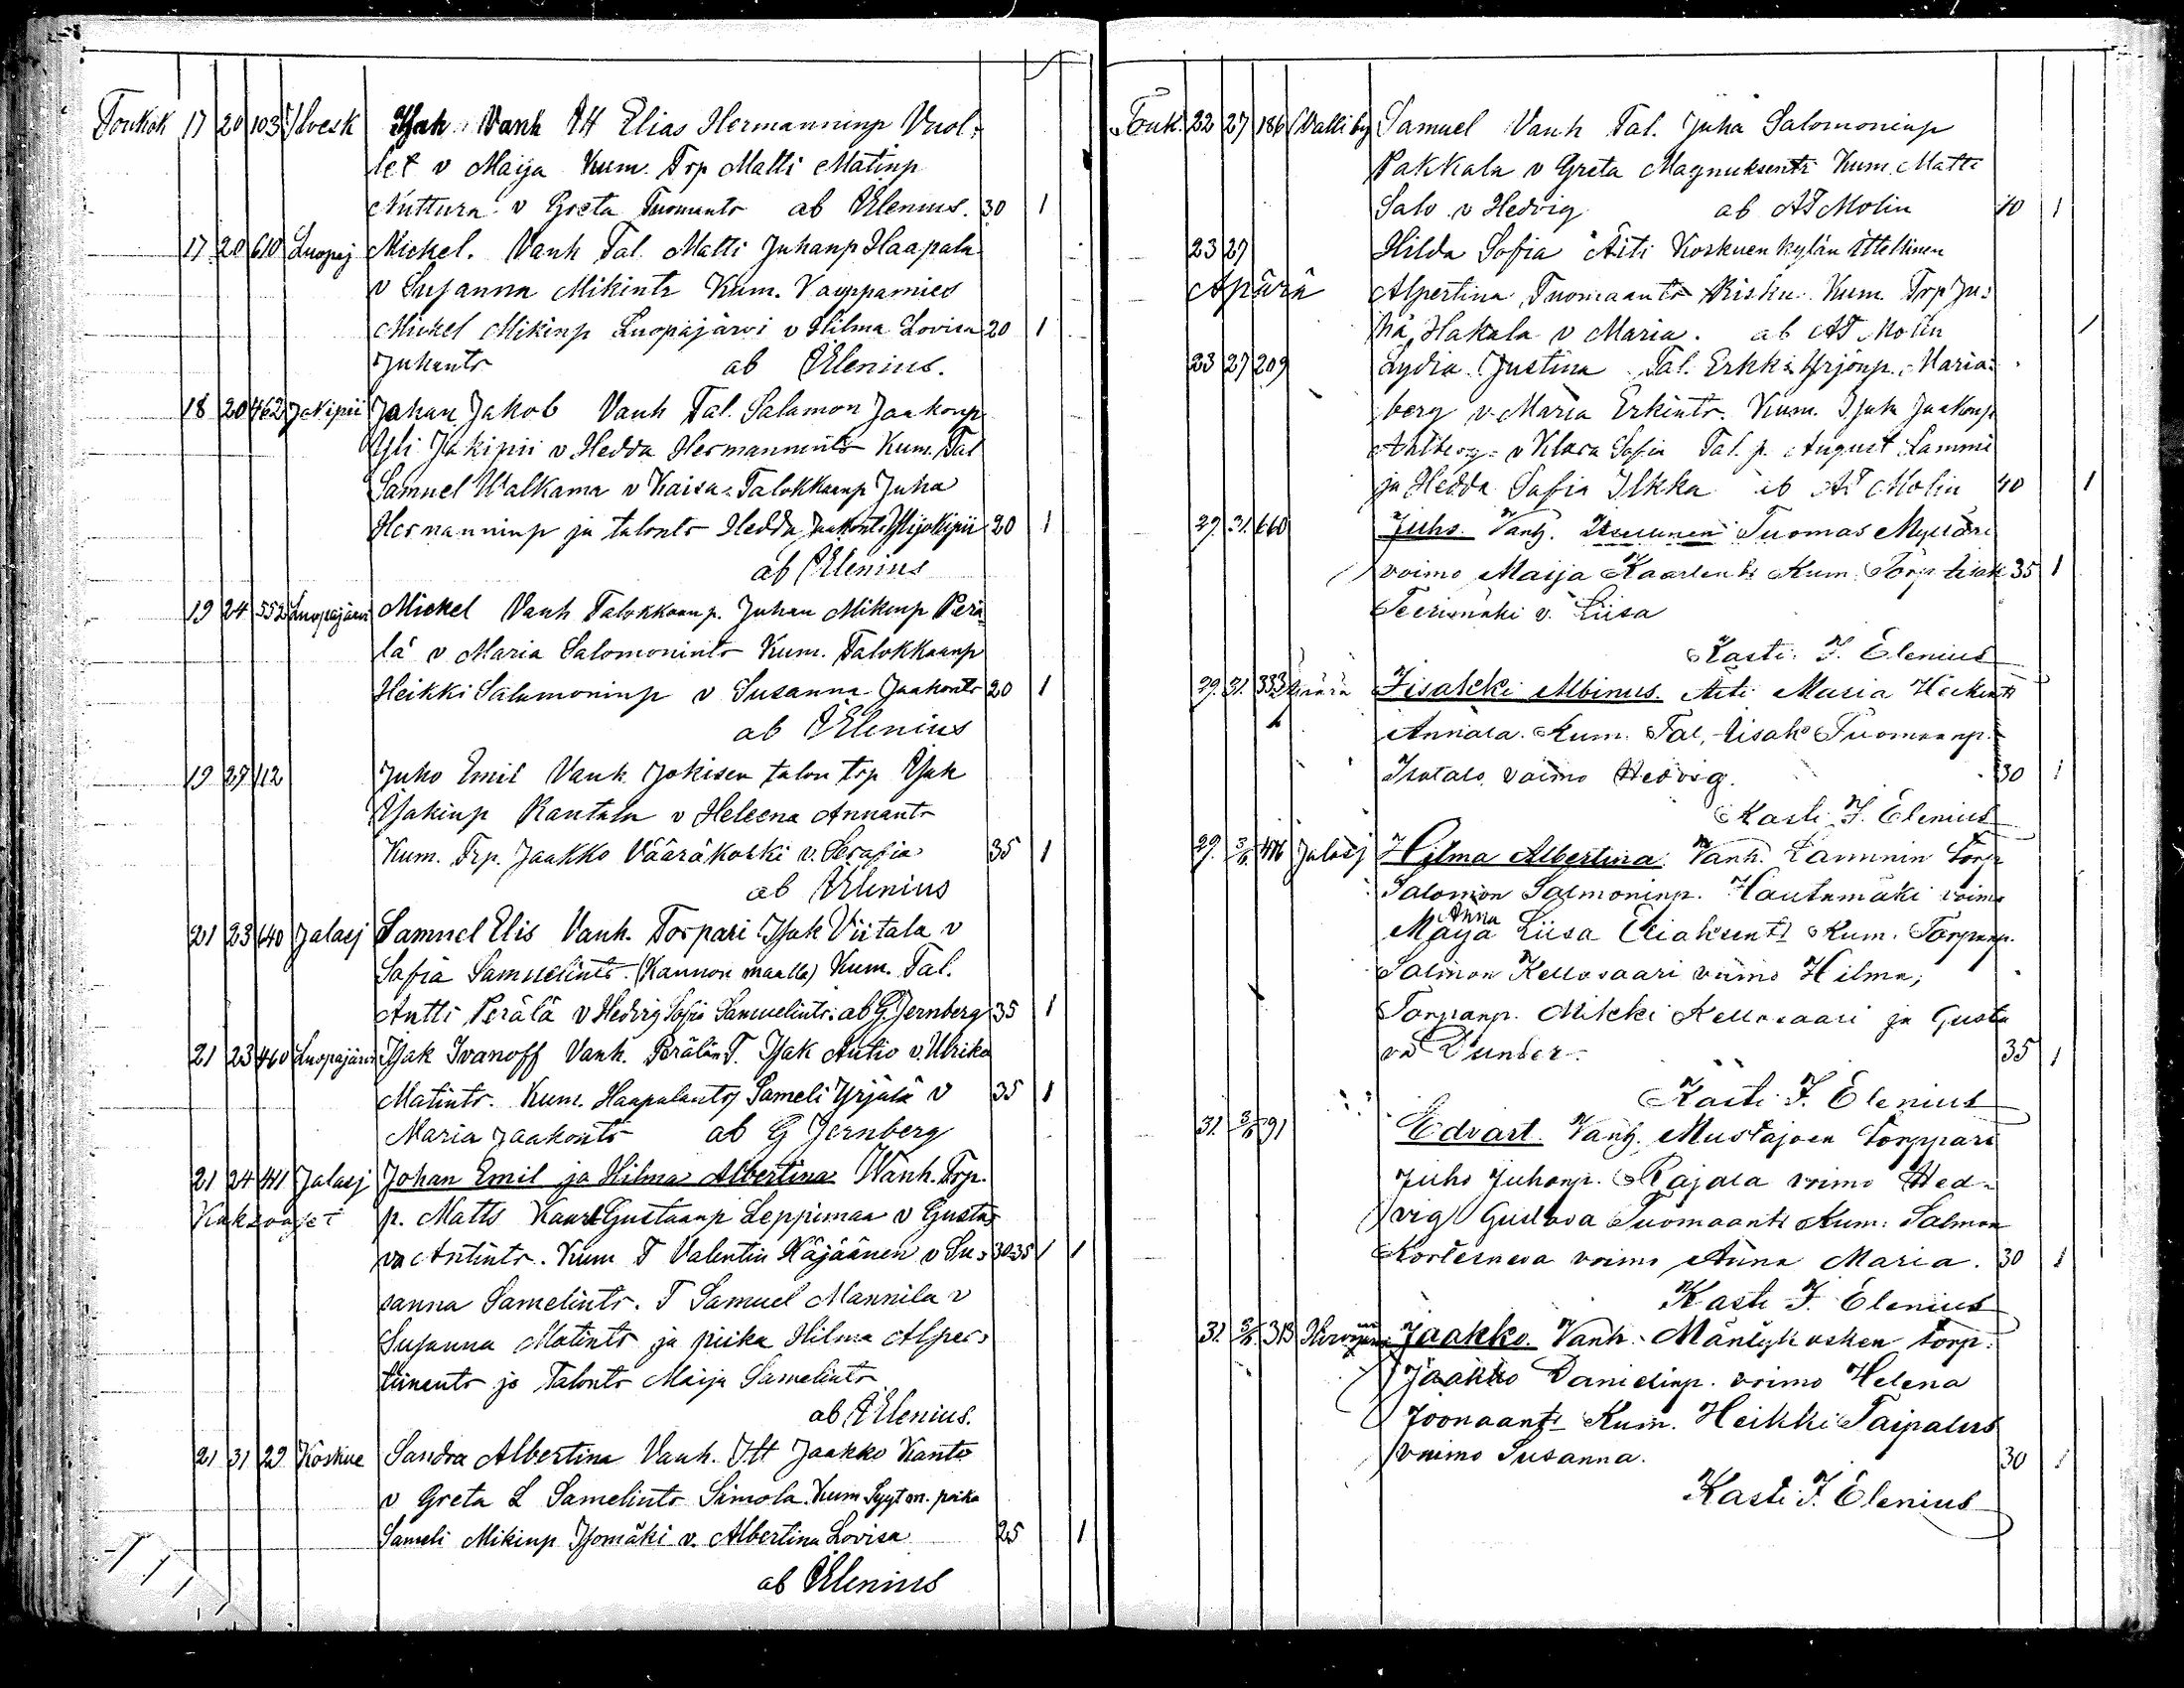 Toukok 17 20 103 Ilvesk Isak Vanh Itt Elias Hermanninp Vuol-
let v Maija Kum. Trp Matti Matinp
Nuttura v Greta Tuomants ab Elenius. 30 1
17 20 610 Luopaj Mickel. Vanh Tal. Matti Juhanp Haapala
v Susanna Mikints Kum. Kauppamies
Mickel Mikinp Luopajärvi v Hilma Lovisa 20 1
Juhants ab Elenius.
18 20 462 Jokipii Johan Jakob Vanh Tal. Salamon Jaakonp
Yli Jokipii v Hedda Hermannints Kum. Tal
Samuel Walkama v Kaisa Talokkaanp Juha
Hermanninp ja talonts Hedda Jaakonts Ylijokipii 20 1
ab Elenius
19 24 552 Luopajärvi Mickel Vanh Talokkaanp. Juhan Mikinp Perä-
lä v Maria Salomonints Kum. Talokkaanp
Heikki Salomoninp v Susanna Jaakonts 20 1
ab Elenius
19 27 112 Juho Emil Vanh. Jokisen talon trp Isak
Isakinp Rantala v Heleena Annants
Kum. Trp. Jaakko Vääräkoski v. Serafia 35 1
ab Elenius
21 23 640 Jalasj Samuel Elis Vanh. Torpari Isak Viitala v
Sofia Samuelints. (Kannon maalla) Kum. Tal.
Antti Perälä v Hedvig Sofia Samuelints. ab G. Jernberg 35 1
21 23 460 Luopajärvi Isak Ivanoff Vanh. Perälän T. Isak Autio v. Ulrika
Matints. Kum. Haapalants Sameli Yrjälä v 35 1
Maria Jaakonts ab G Jernberg
21 24 441 Jalasj Johan Emil ja Hilma Albertina Wanh. Trp.
Kaksoajet p. Matts Kaarl Gustaanp Leppimaa v Gusta-
va Antints. Kum T Valentin Häjäänen v Su- 30-35 1 1
sanna Samelints. T Samuel Mannila v
Susanna Matints ja piika Hilma Alper-
tiinants ja Talonts Maija Samelints
ab Elenius.
21 31 29 Koskue Sandra Albertina Vanh. Itt Jaakko Kanto
v Greta L Samelints Simola. Kum Syyt m. poika
Sameli Mikinp Isomäki v. Albertina Lovisa 25 1
ab Elenius
Touk. 22 27 186 Valli by Samuel Vanh Tal. Juha Salomoninp
Pakkala v Greta Magnuksents Kum. Matti
Salo v Hedvig ab AF Molin 40 1
23 27 Hilda Sofia Äiti Koskuen kylän ittellinen
Äpärä Alpertina Tuomaants Risku. Kum. Trp Ju-
ha Hakala v Maria. ab AF Molin 1
23 27 209 Lydia Justina Tal. Erkki Yrjönp. Maria-
berg v. Maria Erkints. Kum. Isak Jaakonp
Ahlberg v Klara Sofia Tal. p. August Lammi
ja Hedda Sofia Ilkka ab AF Molin 40 1
29. 31. 660 Juho. Vanh. Tuomas Myllari
voimo Maija Kaarlents Kum. Torp. Iisak 35 1
Teerimäki v. Liisa
Kasti: J. Elenius
29. 31. 333 Äpärä Iisakki Albinus. Äiti Maria Heikints
Annala. Kum. Tal. Iisak Tuomaanp.
Isotalo, voimo Hedvig. 30 1
Kasti J. Elenius
29. 3/6 476 Jalasj Hilma Albertina. Vanh. Lammin Torp
Salomon Salmoninp. Hautamäki voimo
Anna
Maija Liisa Eliaksents Kum. Torpanp.
Salmon Kellosaari voimo Hilma,
Torpanp. Mikki Kellosaari ja Gusta
va Dunder. 35 1
Kasti J. Elenius
31. 3/6 91 Edvart. Vanh. Mustajoen Torppari
Juho Juhonp. Rajala voimo Hed-
vig Gustava Tuomaants Kum: Salmon
Kortesneva voimo Anna Maria. 30 1
Kasti J. Elenius
31. 3/6. 313 Hirvijärvi Jaakko. Vanh. Mäntykosken torp.
Jaakko Danielinp. voimo Helena
Joonaants Kum. Heikki Taipalus
voimo Susanna. 30 1
Kasti J. Elenius